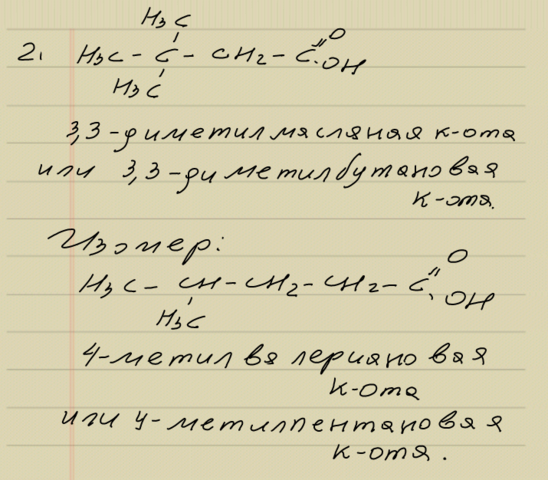 H₃C
2. H₃C - C - CH₂ - C=O
OH
H₃C
3,3-диметилмасляная к-ота
или 3,3-диметилбутановая
к-ота.
Изомер:
H₃C - CH - CH₂ - CH₂ - C=O
OH
H₃C
4-метилвалериановая
к-ота
или 4-метилпентановая
к-ота.